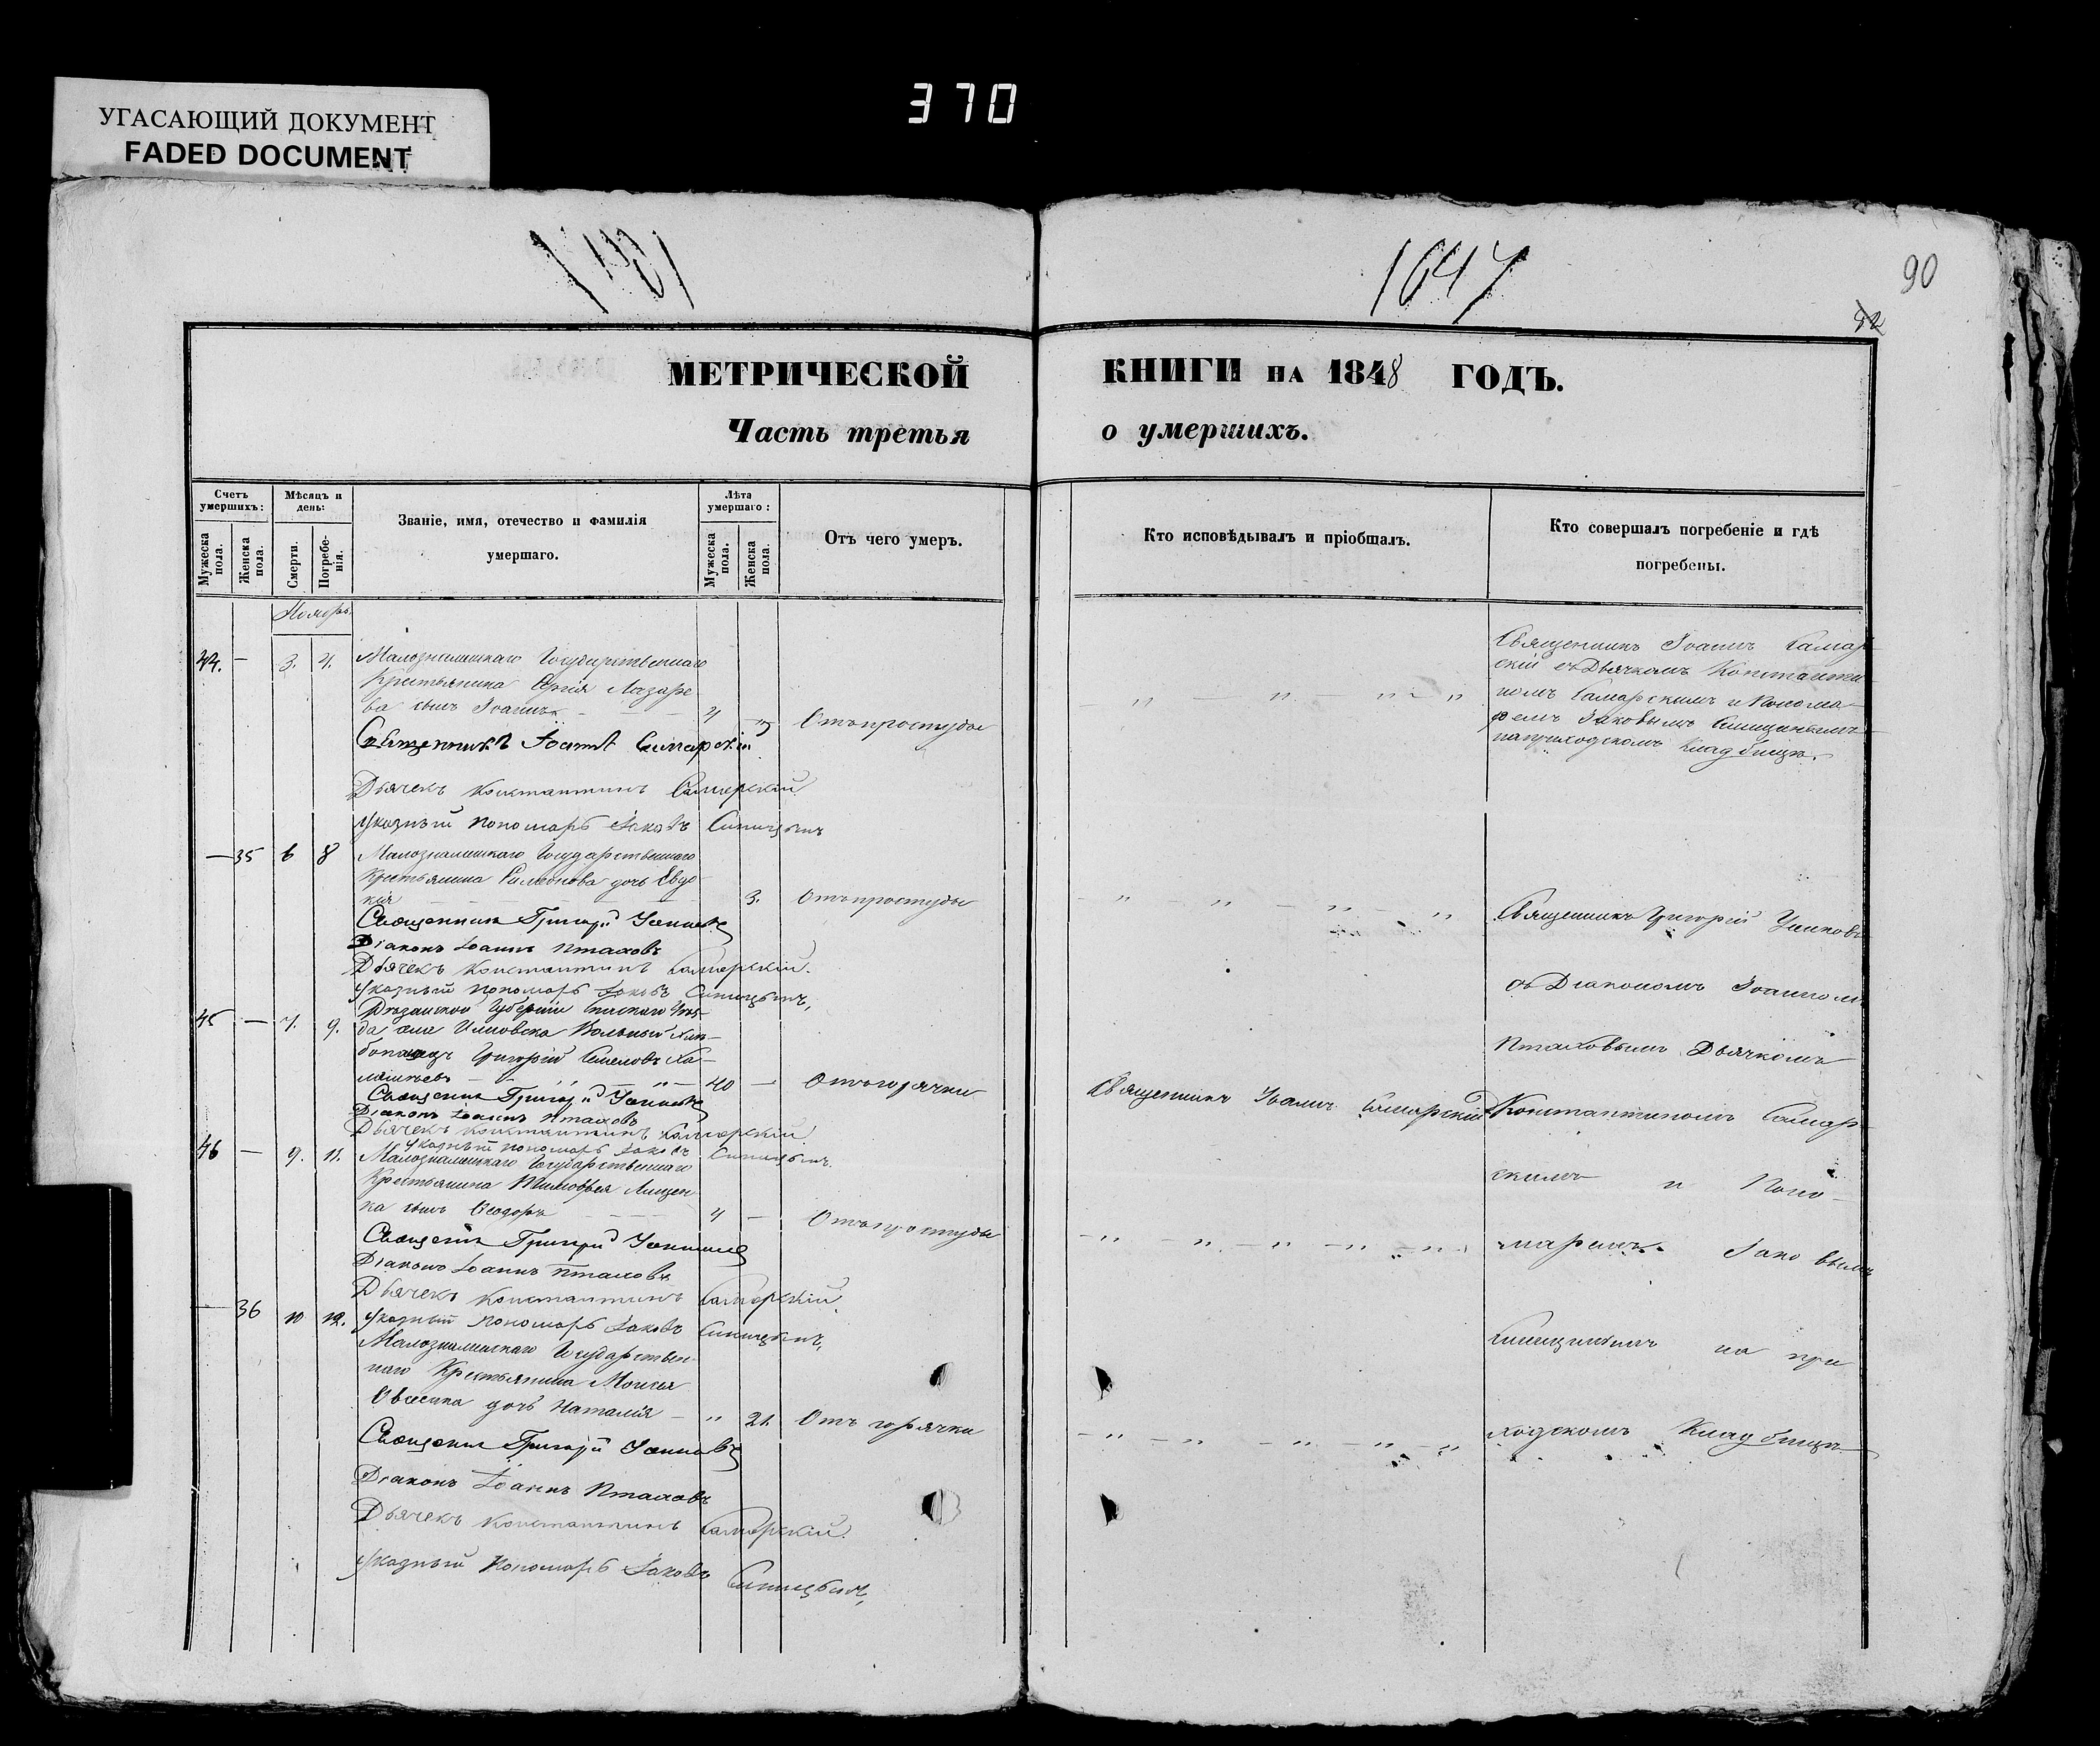 370
УГАСАЮЩИЙ ДОКУМЕНТ
FADED DOCUMENT
1647
90
МЕТРИЧЕСКОЙ
Часть третья
Счетъ умершихъ:
Мужеска пола.
Женска пола.
Мѣсяцъ и день:
Смерти.
Погребе-нія.
Званіе, имя, отечество и фамилія
умершаго.
Лѣта умершаго:
Мужеска пола.
Женска пола.
Отъ чего умеръ.
Ноябрь
44. — 3. 4. Малознаменскаго Государственнаго
Крестьянина Сергія Лазаре
ва сынъ Іоаннъ 4 — Отъ простуды
Священникъ Іоаннъ Самарскій
Дьячекъ Константинъ Самарскій
Указный пономарь Іаковъ Синицынъ
— 35 6 8 Малознаменскаго Государственнаго
Крестьянина Симеонова дочь Евдо
кія 3. Отъ простуды
Священникъ Григорій
Діаконъ Іоаннъ Птаховъ
Дьячекъ Константинъ Самарскій.
Указный пономарь Іаковъ Синицынъ,
45 — 7. 9. Губерніи Уѣз-
да села Вольный Хлѣ-
бопашецъ Григорій
40 — Отъ горячки
Священникъ Григорій
Діаконъ Іоаннъ Птаховъ
Дьячекъ Константинъ Самарскій
Указный пономарь Іаковъ Синицынъ.
46 — 9. 11. Малознаменскаго Государственнаго
Крестьянина Тимофея Лищен
ка сынъ Ѳеодоръ 4 — Отъ простуды
Священникъ Григорій
Діаконъ Іоаннъ Птаховъ
Дьячекъ Константинъ Самарскій.
— 36 10 12. Указный пономарь Іаковъ Синицынъ,
Малознаменскаго Государствен
наго Крестьянина Моисея
дочь Наталія — " 21. Отъ горячки
Священникъ Григорій
Діаконъ Іоаннъ Птаховъ
Дьячекъ Константинъ Самарскій.
Указный Пономарь Іаковъ Синицынъ,
КНИГИ НА 1848 ГОДЪ.
о умершихъ.
Кто исповѣдывалъ и пріобщалъ.
Кто совершалъ погребеніе и гдѣ
погребены.
Священникъ Іоаннъ Самар
скій съ Дьячкомъ Константи
номъ Самарскимъ и Понома
ремъ Іаковымъ Синицынымъ
на приходскомъ кладбищѣ.
Священникъ Григорій
съ Діакономъ Іоанномъ
Птаховымъ Дьячкомъ
Священникъ Іоаннъ Самарскій
Константиномъ Самар
скимъ и Поно-
маремъ Іаковымъ
Синицынымъ на при
ходскомъ Кладбищѣ